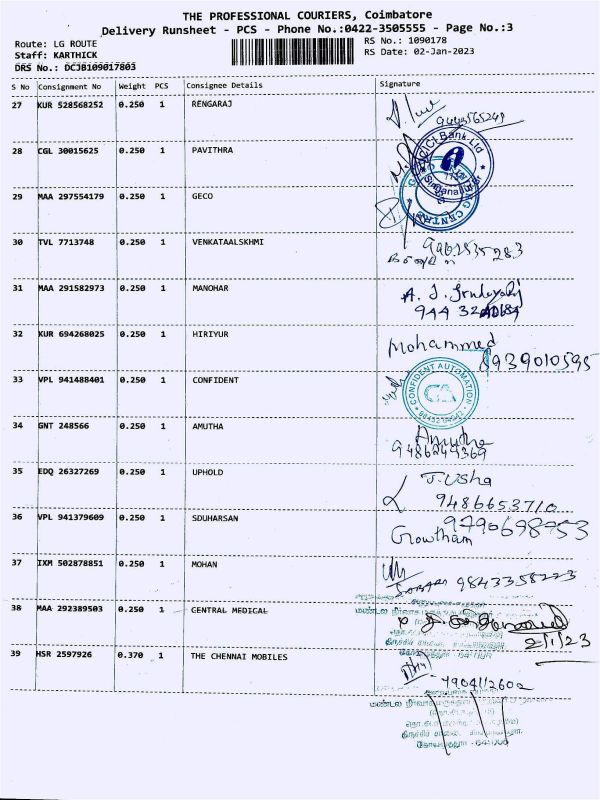 THE PROFESSIONAL COURIERS, Coimbatore
Delivery Runsheet - PCS - Phone No.:0422-3505555 - Page No.:3
Route: LG ROUTE
RS No.: 1090178
Staff: KARTHICK
RS Date: 02-Jan-2023
DRS No.: DCJB109017803
S No Consignment No Weight PCS Consignee Details Signature
27 KUR 528568252 0.250 1 RENGARAJ
28 CGL 30015625 0.250 1 PAVITHRA
ICICI Bank Ltd
29 MAA 297554179 0.250 1 GECO
30 TVL 7713748 0.250 1 VENKATAALSKHMI
31 MAA 291582973 0.250 1 MANOHAR
32 KUR 694268025 0.250 1 HIRIYUR Mohammed
8939010595
33 VPL 941488401 0.250 1 CONFIDENT
CONFIDENT AUTOMATION
CA
34 GNT 248566 0.250 1 AMUTHA Amutha
9486249369
35 EDQ 26327269 0.250 1 UPHOLD T. Usha
9486653710
36 VPL 941379609 0.250 1 SDUHARSAN 9790698753
Gowtham
37 IXM 502878851 0.250 1 MOHAN
9843358223
38 MAA 292389503 0.250 1 CENTRAL MEDICAL
2/1/23
39 HSR 2597926 0.370 1 THE CHENNAI MOBILES
7904112602